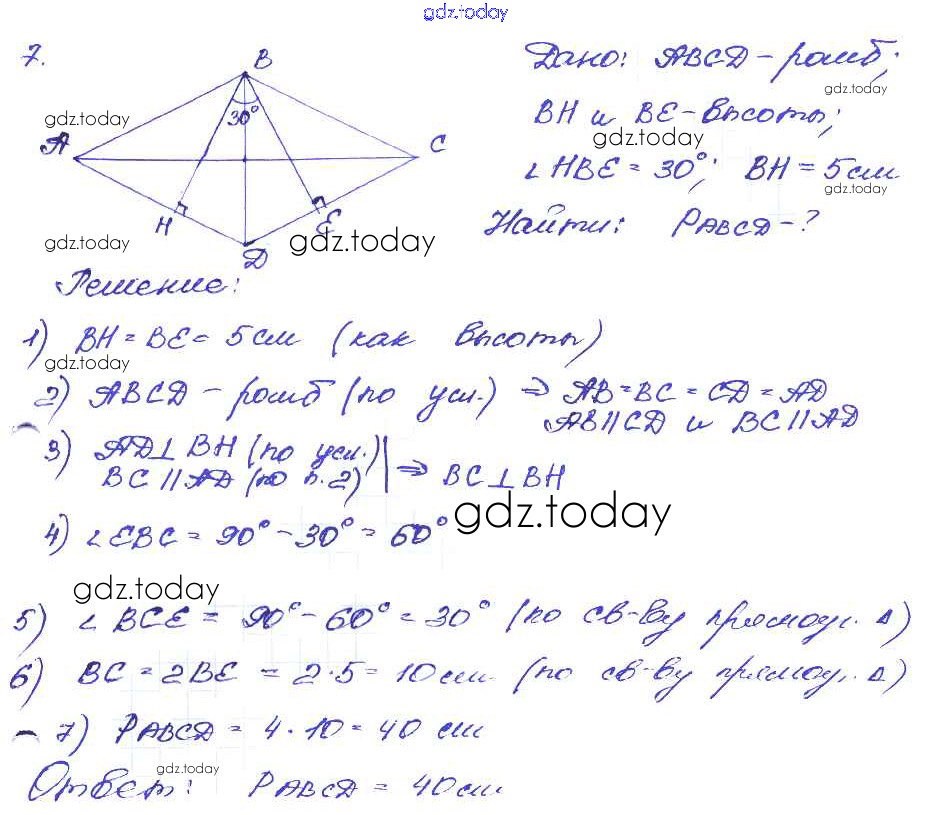 gdz.today
7.
B
30°
A
C
H
E
D
Дано: ABCD – ромб;
BH и BE – высоты;
∠HBE = 30°; BH = 5 см
Найти: PABCD – ?
gdz.today
gdz.today
gdz.today
gdz.today
gdz.today
gdz.today
Решение:
1) BH = BE = 5 см (как высоты)
gdz.today
2) ABCD – ромб (по усл.) ⇒ AB = BC = CD = AD
AB || CD и BC || AD
3) AD ⊥ BH (по усл.)
BC || AD (по п. 2) | ⇒ BC ⊥ BH
gdz.today
4) ∠EBC = 90° – 30° = 60°
gdz.today
5) ∠BCE = 90° – 60° = 30° (по св-ву прямоуг. Δ)
6) BC = 2BE = 2·5 = 10 см (по св-ву прямоуг. Δ)
7) PABCD = 4 · 10 = 40 см
gdz.today
Ответ: PABCD = 40 см